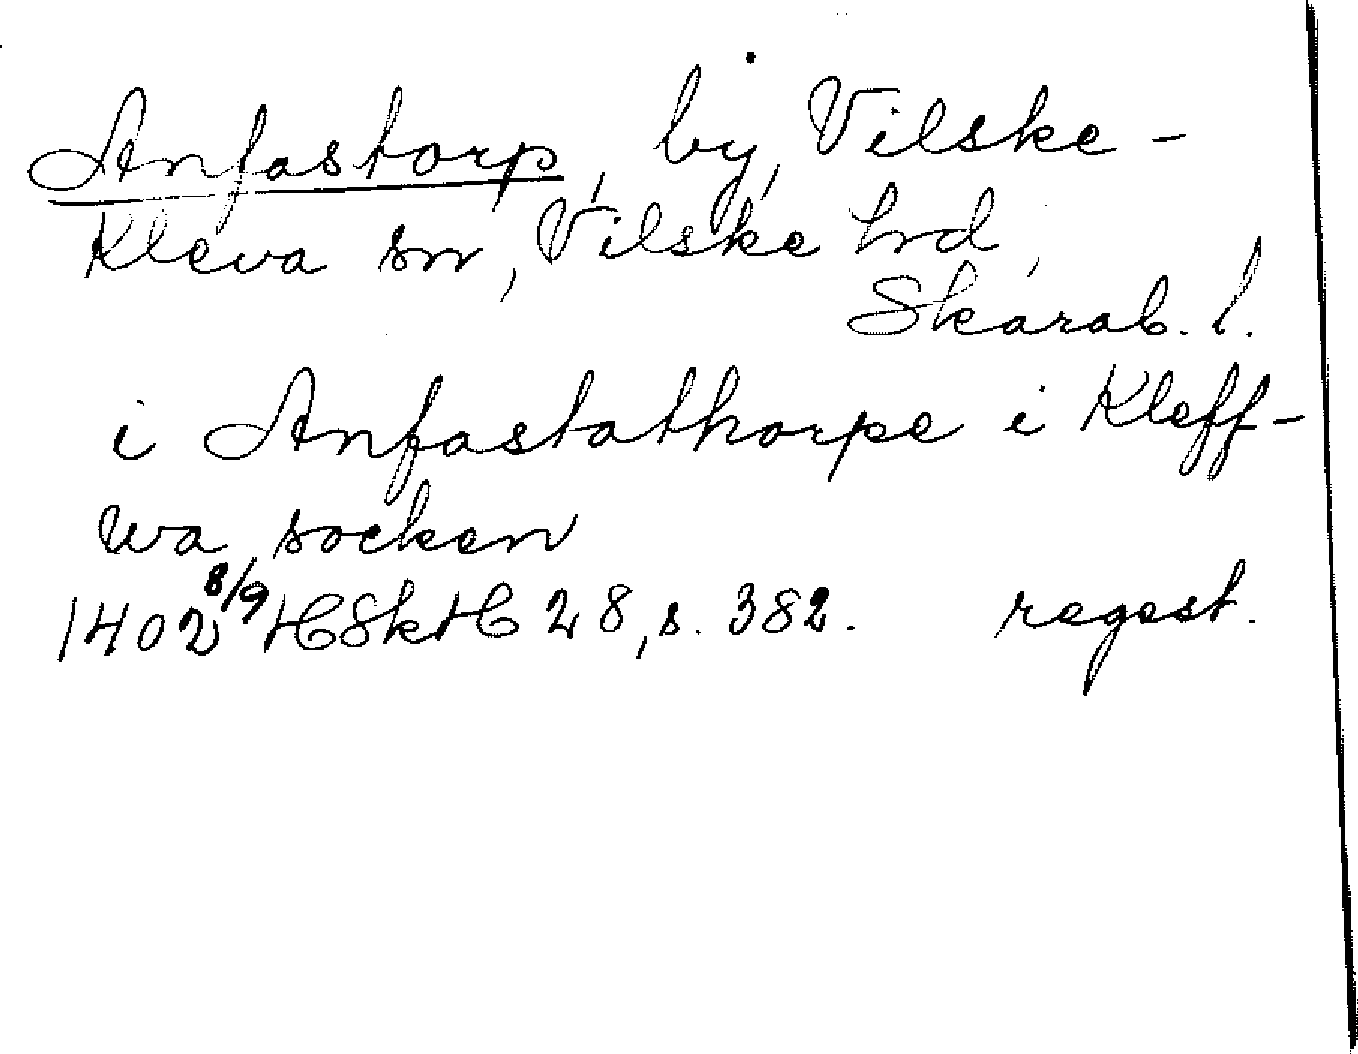 Anfastorp, by, Vilske-
Kleva sn, Vilske hd,
Skarab. l.
i Anfastathorpe i Kleff-
wa socken
1402 8/9 HSkH 28, s. 382. regest.